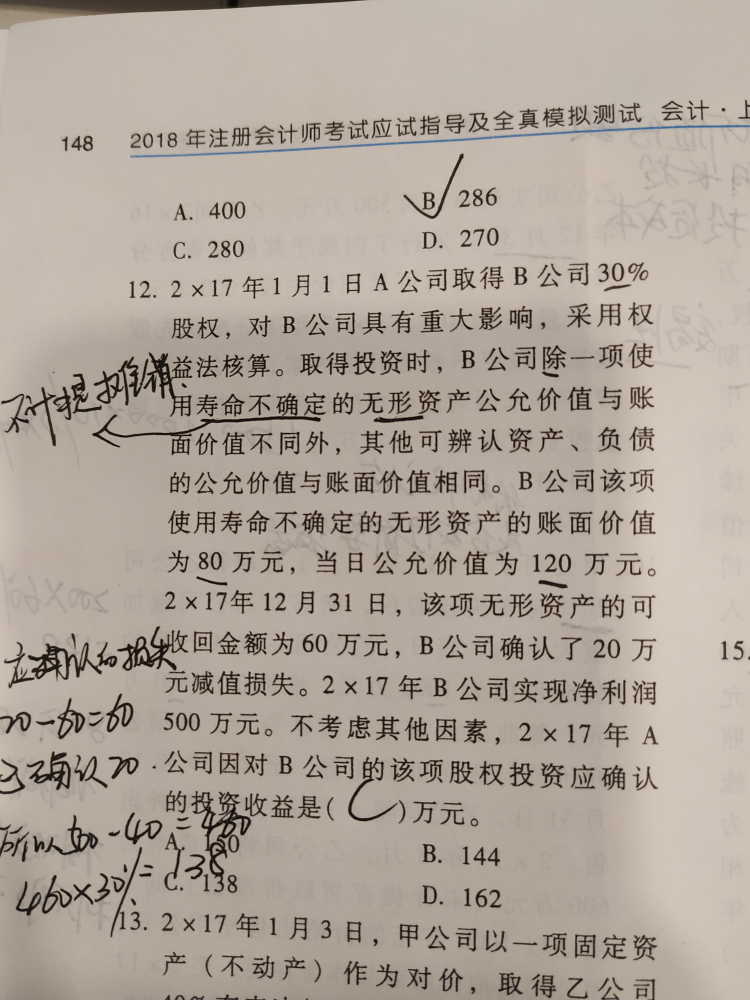 148 2018年注册会计师考试应试指导及全真模拟测试 会计·上
A. 400 B. 286
C. 280 D. 270
12. 2×17年1月1日A公司取得B公司30%
股权，对B公司具有重大影响，采用权
益法核算。取得投资时，B公司除一项使
用寿命不确定的无形资产公允价值与账
面价值不同外，其他可辨认资产、负债
的公允价值与账面价值相同。B公司该项
使用寿命不确定的无形资产的账面价值
为80万元，当日公允价值为120万元。
2×17年12月31日，该项无形资产的可
收回金额为60万元，B公司确认了20万
元减值损失。2×17年B公司实现净利润
500万元。不考虑其他因素，2×17年A
公司因对B公司的该项股权投资应确认
的投资收益是( C )万元。
A. 150 B. 144
C. 138 D. 162
13. 2×17年1月3日，甲公司以一项固定资
产（不动产）作为对价，取得乙公司
不计提摊销
应确认的损失
20-60=60
已确认20
所以500-40=460
460×30%=138
15.